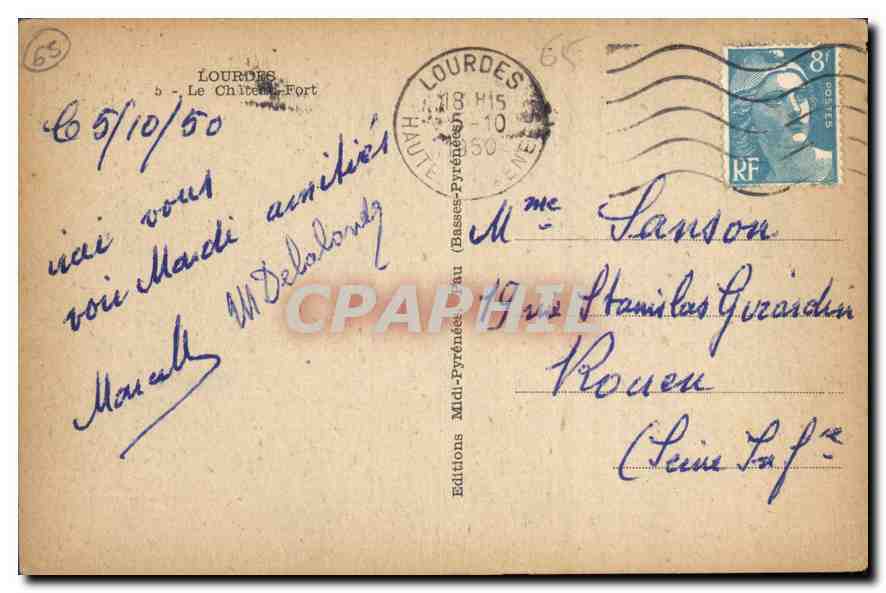 65
65
LOURDES
5 - Le Château-Fort
Ce 5/10/50
irai vous
voir Mardi amitiés
M Delalande
Marcelle
Editions Midi-Pyrénées Pau (Basses-Pyrénées)
LOURDES
18 H15
5-10
1950
HAUTES PYRENEES
8F
POSTES
RF
Mme Sanson
19 rue Stanislas Girardin
Rouen
(Seine Infre
CPAPHIL